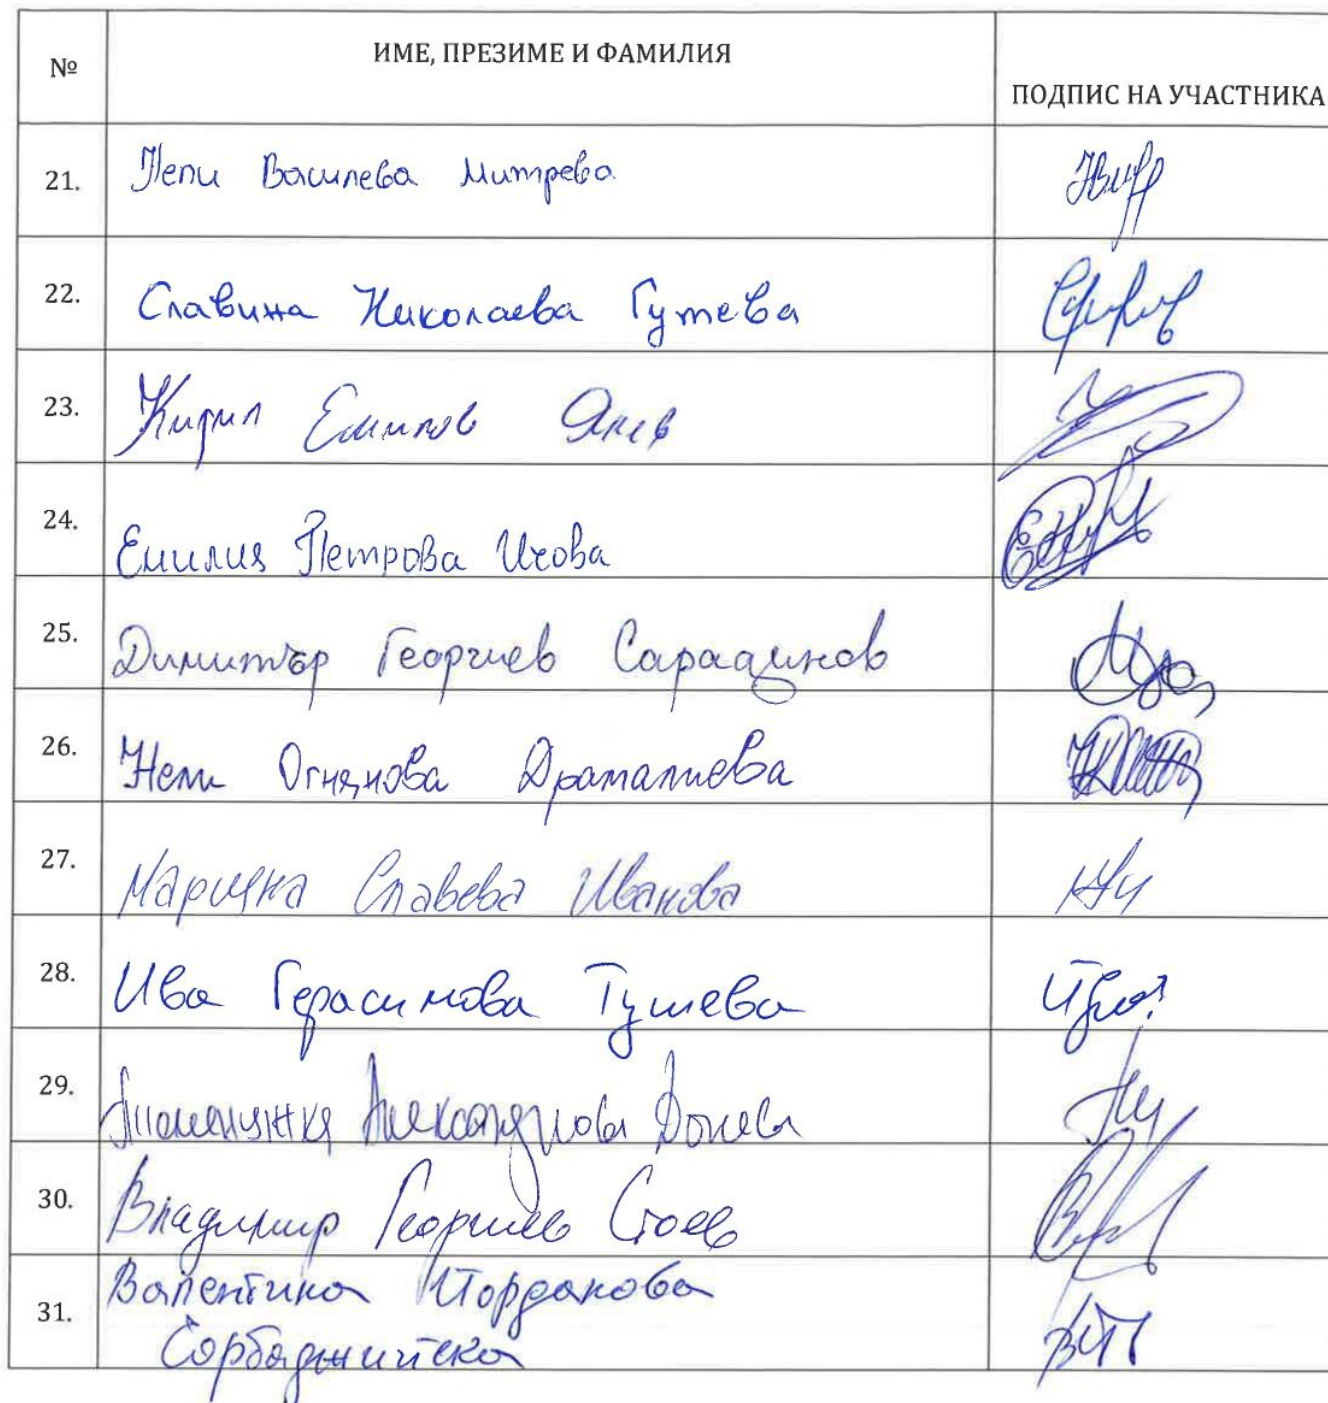 № ИМЕ, ПРЕЗИМЕ И ФАМИЛИЯ ПОДПИС НА УЧАСТНИКА
21. Пепи Василева Митрева
22. Славина Николаева Гутева
23. Кирил Емилов Янев
24. Емилия Петрова Ичова
25. Димитър Георгиев Сарадинов
26. Нели Огнянова Драталиева
27. Марияна Славева Иванова
28. Ива Герасимова Тушева
29. Александрова Донева
30. Владимир Георгиев Стоев
31. Валентина Йорданова